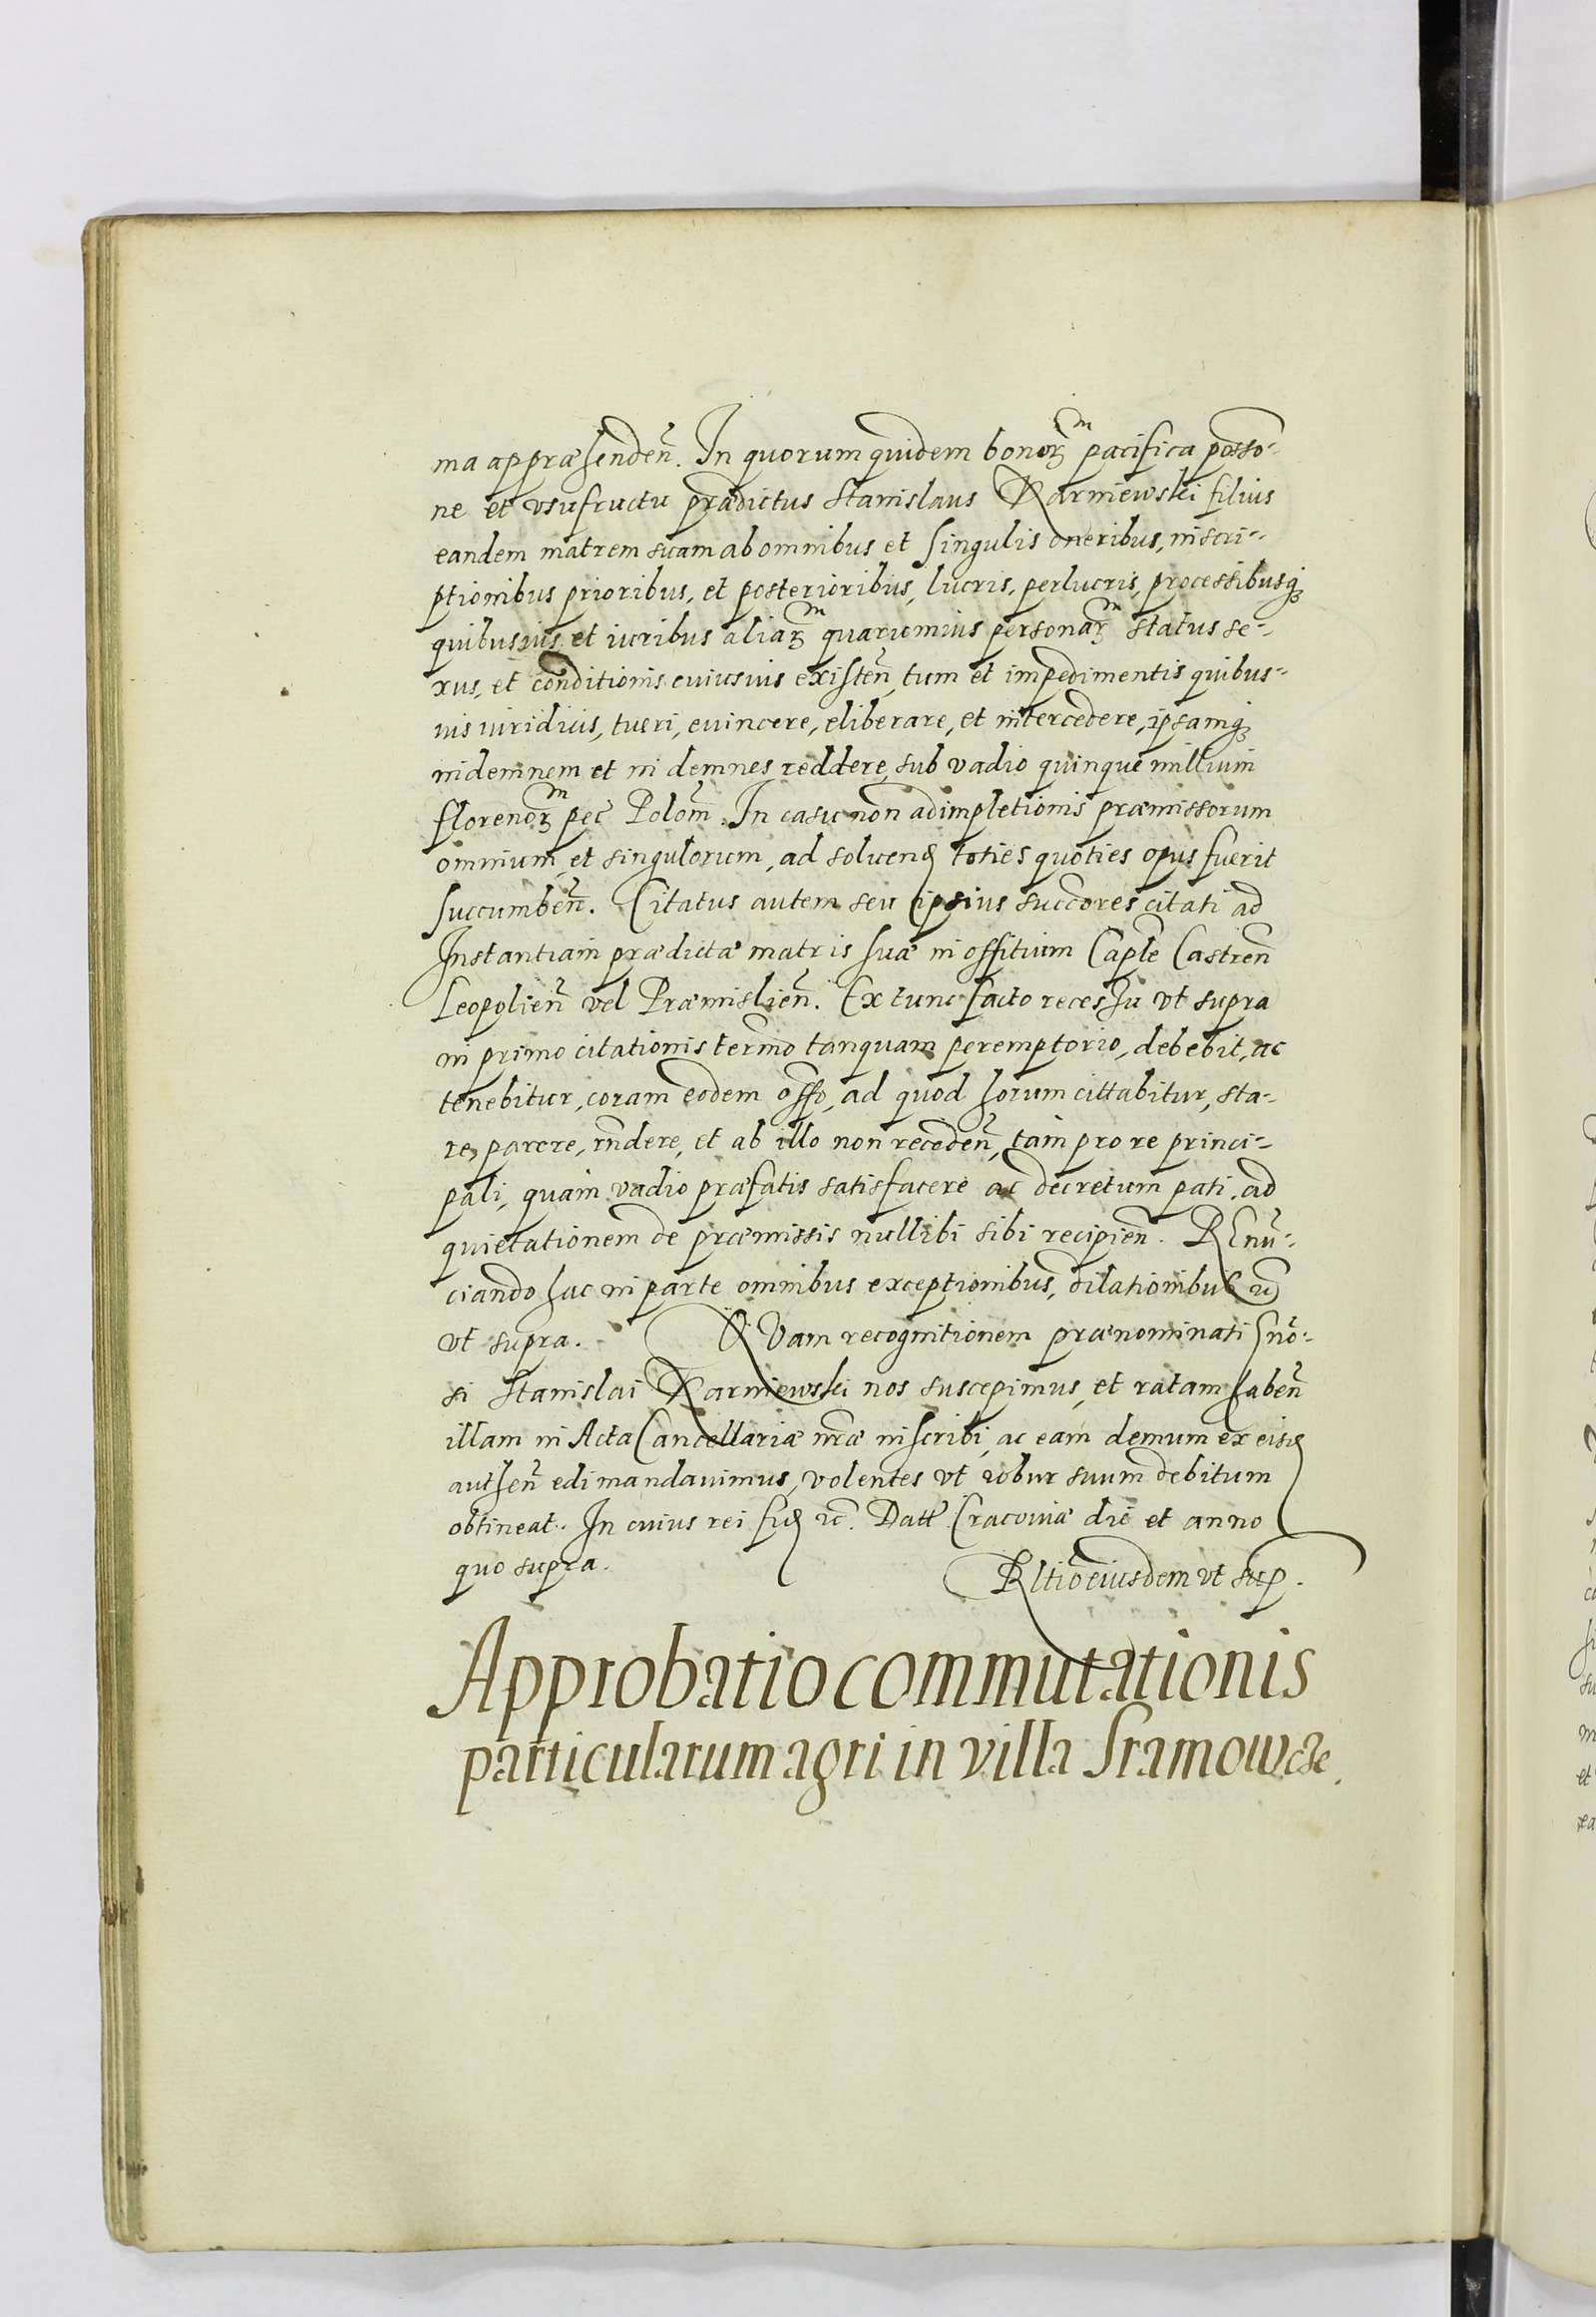 ma appræhenden̄. In quorum quidem bonorꝫ pacifica posso-
ne et vsufructu prædictus Stanislaus Karniewski filius
eandem matrem suam ab omnibus et singulis oneribus, inscri-
ptionibus prioribus, et posterioribus, lucris, perlucris, processibusqꝫ
quibusuis et iuribus aliarꝫ quarumuis personarꝫ status se-
xus, et conditionis cuiusuis existen̄, tum et impedimentis quibus-
uis iuridicis, tueri, euincere, eliberare, et intercedere, ipsamqꝫ
indemnem et indemnes reddere, sub vadio quinque millium
florenorꝫ pec̄ Polon̄. In casu non adimpletionis præmissorum
omnium, et singulorum, ad soluend̄ toties quoties opus fuerit
succumben̄. Citatus autem seu ipsius succores citati ad
Instantiam prædictæ matris suæ in offitium Caple Castren̄
Leopolien̄ vel Præmislien̄. Ex tunc facto recessu vt supra
in primo citationis termo tanquam peremptorio, debebit, ac
tenebitur, coram eodem offo, ad quod horum cittabitur, sta-
re, parere, rn̄dere, et ab illo non receden̄, tam pro re princi-
pali, quam vadio præfatis satisfacere ac decretum pati, ad
quietationem de præmissis nullibi sibi recipien̄. REnū-
ciando hac in parte omnibus exceptionibus, dilationibus ⁊c
vt supra. QVam recognitionem prænominati Gn̄o-
si Stanislai Karniewski nos suscepimus, et ratam haben̄
illam in Acta Cancellariæ nr̄æ inscribi, ac eam demum ex eisd̄
authen̄ edi mandauimus, volentes vt robur suum debitum
obtineat. In cuius rei fid̄ ⁊c. Datt̄ Cracouiæ die et anno
quo supra.
Rltio eiusdem vt sup.
Approbatio commutationis
particularum agri in villa Sramowcze.